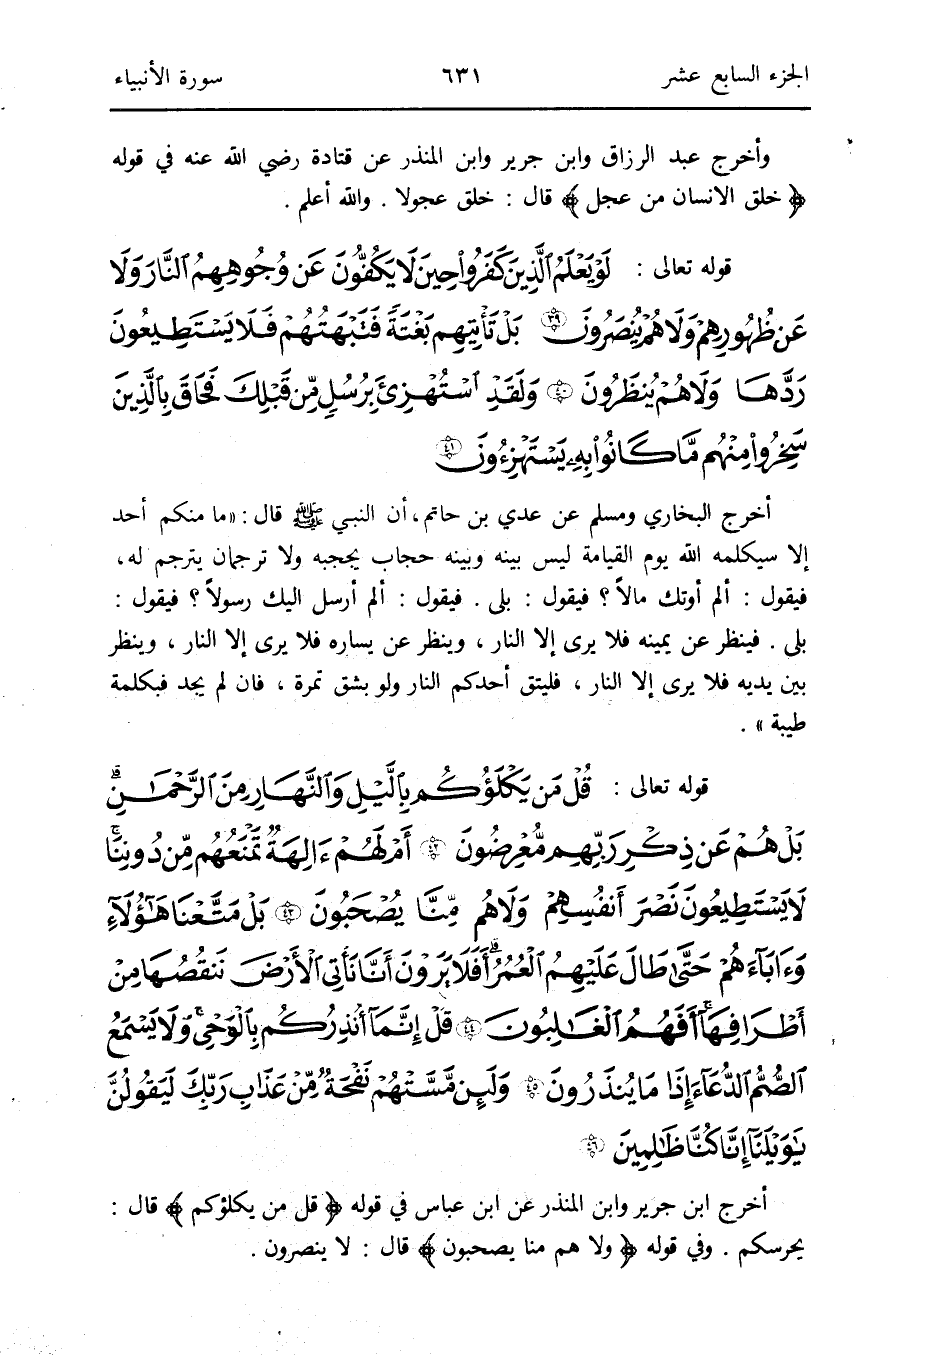 الجزء السابع عشر ٦٣١ سورة الأنبياء
وأخرج عبد الرزاق وابن جرير وابن المنذر عن قتادة رضي الله عنه في قوله
﴿ خلق الانسان من عجل ﴾ قال : خلق عجولا . والله أعلم .
قوله تعالى : لَوْ يَعْلَمُ ٱلَّذِينَ كَفَرُوا۟ حِينَ لَا يَكُفُّونَ عَن وُجُوهِهِمُ ٱلنَّارَ وَلَا
عَن ظُهُورِهِمْ وَلَا هُمْ يُنصَرُونَ ٣٩ بَلْ تَأْتِيهِم بَغْتَةً فَتَبْهَتُهُمْ فَلَا يَسْتَطِيعُونَ
رَدَّهَا وَلَا هُمْ يُنظَرُونَ ٤٠ وَلَقَدِ ٱسْتُهْزِئَ بِرُسُلٍ مِّن قَبْلِكَ فَحَاقَ بِٱلَّذِينَ
سَخِرُوا۟ مِنْهُم مَّا كَانُوا۟ بِهِۦ يَسْتَهْزِءُونَ ٤١
أخرج البخاري ومسلم عن عدي بن حاتم، أن النبي ﷺ قال : «ما منكم أحد
إلا سيكلمه الله يوم القيامة ليس بينه وبينه حجاب يحجبه ولا ترجمان يترجم له ،
فيقول : ألم أوتك مالاً ؟ فيقول : بلى . فيقول : ألم أرسل اليك رسولاً ؟ فيقول :
بلى . فينظر عن يمينه فلا يرى إلا النار ، وينظر عن يساره فلا يرى إلا النار ، وينظر
بين يديه فلا يرى إلا النار ، فليتق أحدكم النار ولو بشق تمرة ، فان لم يجد فبكلمة
طيبة » .
قوله تعالى : قُلْ مَن يَكْلَؤُكُم بِٱلَّيْلِ وَٱلنَّهَارِ مِنَ ٱلرَّحْمَٰنِ ۗ
بَلْ هُمْ عَن ذِكْرِ رَبِّهِم مُّعْرِضُونَ ٤٢ أَمْ لَهُمْ ءَالِهَةٌ تَمْنَعُهُم مِّن دُونِنَا ۚ
لَا يَسْتَطِيعُونَ نَصْرَ أَنفُسِهِمْ وَلَا هُم مِّنَّا يُصْحَبُونَ ٤٣ بَلْ مَتَّعْنَا هَٰٓؤُلَآءِ
وَءَابَآءَهُمْ حَتَّىٰ طَالَ عَلَيْهِمُ ٱلْعُمُرُ ۗ أَفَلَا يَرَوْنَ أَنَّا نَأْتِى ٱلْأَرْضَ نَنقُصُهَا مِنْ
أَطْرَافِهَآ ۚ أَفَهُمُ ٱلْغَٰلِبُونَ ٤٤ قُلْ إِنَّمَآ أُنذِرُكُم بِٱلْوَحْىِ ۚ وَلَا يَسْمَعُ
ٱلصُّمُّ ٱلدُّعَآءَ إِذَا مَا يُنذَرُونَ ٤٥ وَلَئِن مَّسَّتْهُمْ نَفْحَةٌ مِّنْ عَذَابِ رَبِّكَ لَيَقُولُنَّ
يَٰوَيْلَنَآ إِنَّا كُنَّا ظَٰلِمِينَ ٤٦
أخرج ابن جرير وابن المنذر عن ابن عباس في قوله ﴿ قل من يكلؤكم ﴾ قال :
يحرسكم . وفي قوله ﴿ ولا هم منا يصحبون ﴾ قال : لا ينصرون .